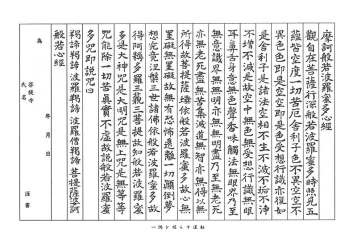 摩訶般若波羅蜜多心經
觀自在菩薩行深般若波羅蜜多時照見五
蘊皆空度一切苦厄舍利子色不異空空不
異色色即是空空即是色受想行識亦復如
是舍利子是諸法空相不生不滅不垢不淨
不增不減是故空中無色無受想行識無眼
耳鼻舌身意無色聲香味觸法無眼界乃至
無意識界無無明亦無無明盡乃至無老死
亦無老死盡無苦集滅道無智亦無得以無
所得故菩提薩埵依般若波羅蜜多故心無
罣礙無罣礙故無有恐怖遠離一切顛倒夢
想究竟涅槃三世諸佛依般若波羅蜜多故
得阿耨多羅三藐三菩提故知般若波羅蜜
多是大神咒是大明咒是無上咒是無等等
咒能除一切苦眞實不虛故說般若波羅蜜
多咒即說咒曰
羯諦羯諦波羅羯諦波羅僧羯諦菩提薩婆訶
般若心經
為
年月日
菩提寺
氏名
謹書